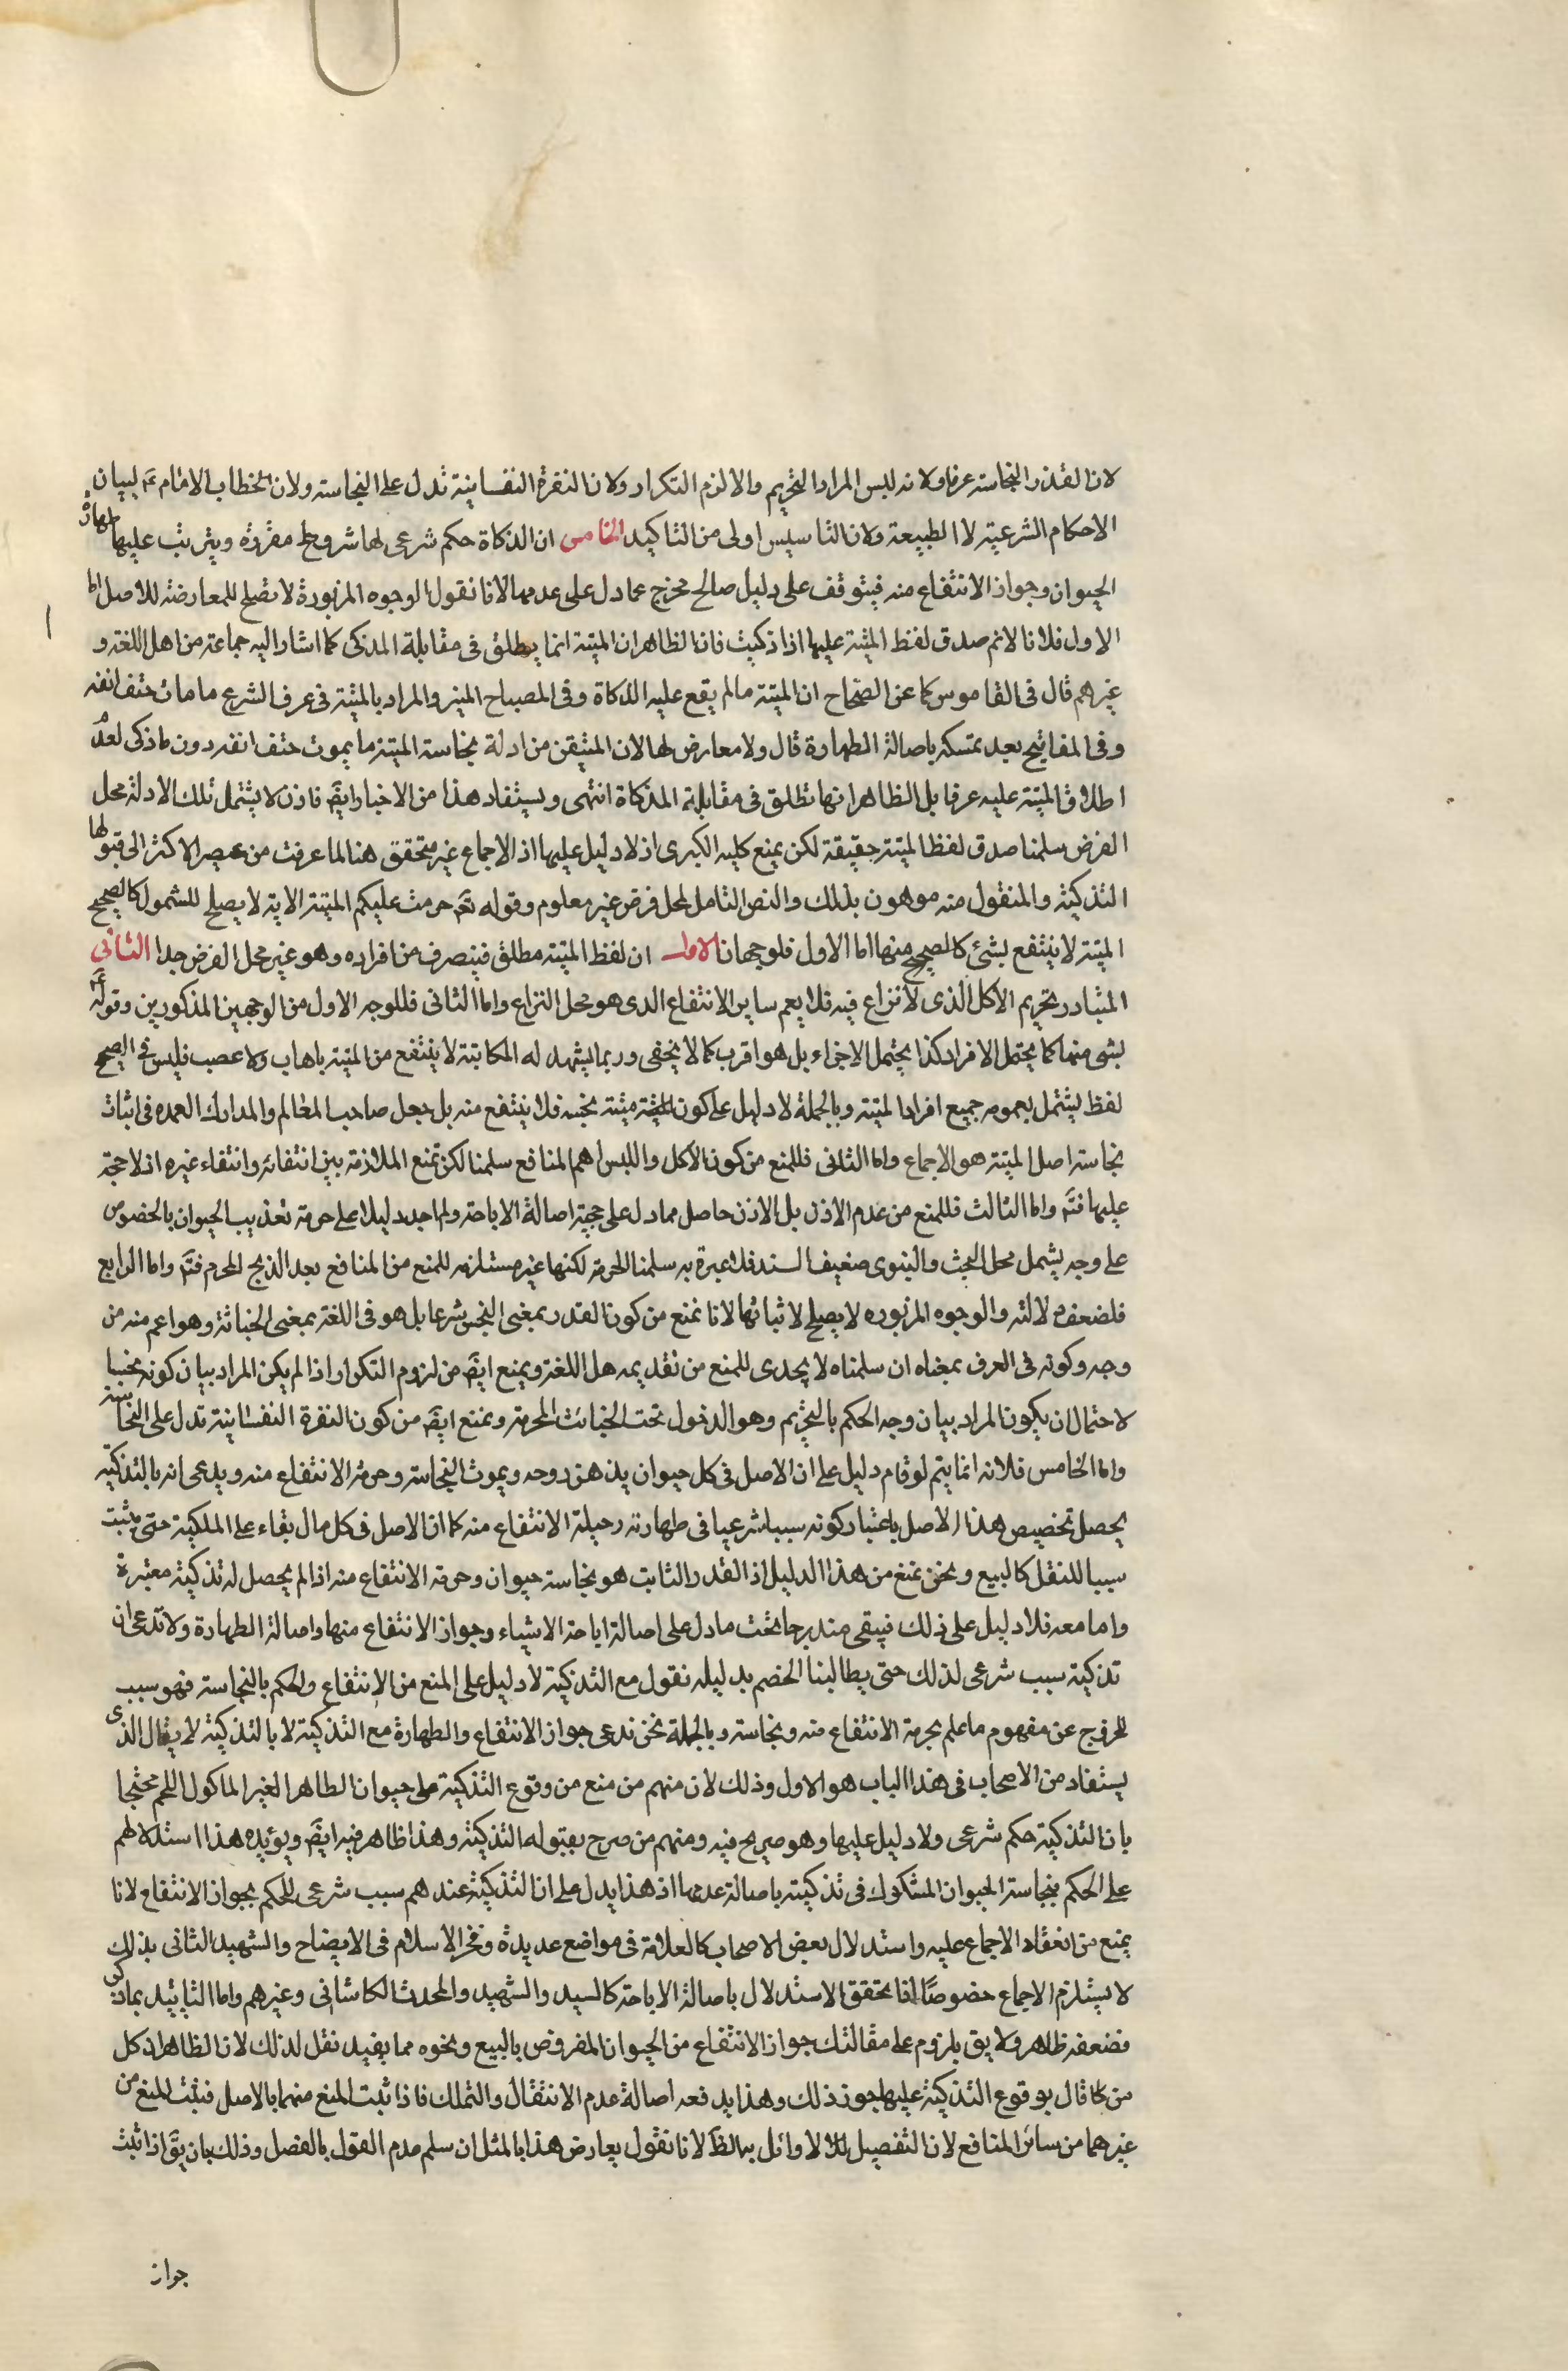 لان القذر النجاسة عرفا ولانه ليس المراد التحريم والا لزم التكرار ولان النفرة النفسانية تدل على النجاسة ولان الخطاب الامام ع لبيان
الاحكام الشرعية لا الطبيعة ولان التاسيس اولى من التاكيد الخامس ان الذكاة حكم شرعى لها شروط مقررة ويترتب عليها طهارة
الحيوان وجواز الانتفاع منه فيتوقف على دليل صالح مخرج عما دل على عدمها لانا نقول الوجوه المزبورة لا تصلح للمعارضة للاصل اما
الاول فلانا لانم صدق لفظ الميتة عليها اذا ذكيت فان الظاهر ان الميتة انما يطلق فى مقابلة المذكى كما اشار اليه جماعة من اهل اللغة و
غيرهم قال فى القاموس كما عن الصحاح ان الميتة مالم يقع عليه الذكاة وفى المصباح المنير والمراد بالميتة فى عرف الشرع ما مات حتف انفه
وفى المفاتيح بعد تمسكه باصالة الطهارة قال ولا معارض لها لان المتيقن من ادلة نجاسة الميتة ما يموت حتف انفه دون ما ذكى لعدم
اطلاق الميتة عليه عرفا بل الظاهر انها تطلق فى مقابلة المذكاة انتهى ويستفاد هذا من الاخبار ايض فاذن لا يشتمل تلك الادلة محل
الفرض سلمنا صدق لفظ الميتة حقيقة لكن يمنع كلية الكبرى اذ لا دليل عليها اذ الاجماع غير متحقق هنا لما عرفت من مصير الاكثر الى قبولها
التذكية والمنقول منه موهون بذلك والنص الشامل لمحل فرض غير معلوم وقوله تع حرمت عليكم الميتة الاية لا يصلح للشمول كالصحيح
الميتة لا ينتفع بشئ كالصحيح منها اما الاول فلوجهان الاول ان لفظ الميتة مطلق فينصرف من افراده وهو غير محل الفرض جدا الثانى
المتبادر تحريم الاكل الذى لا نزاع فيه فلا يعم ساير الانتفاع الذى هو محل النزاع واما الثانى فللوجه الاول من الوجهين المذكورين وقوله
بشى منها كما يحتمل الافراد كذا يحتمل الاجزاء بل هو اقرب كما لا يخفى وربما يشهد له المكاتبة لا ينتفع من الميتة باهاب ولا عصب فليس فى الصحيح
لفظ يشتمل بعمومه جميع افراد الميتة وبالجملة لا دليل على كون ميتة نجسه فلا ينتفع منه بل جعل صاحب المعالم والمدارك العمده فى اثبات
نجاسة اصل الميتة هو الاجماع واما الثانى فللمنع من كون الاكل واللبس اهم المنافع سلمنا لكن تمنع الملازمة بين انتفائه وانتفاء غيره اذ لا حجة
عليها فتم واما الثالث فللمنع من عدم الاذن بل الاذن حاصل مما دل على حجية اصالة الاباحة ولم اجد دليلا على حرمة تعذيب الحيوان بالخصوص
على وجه يشمل محل البحث والنبوى ضعيف السند فلا عبرة به سلمنا الحرمة لكنها غير مستلزمه للمنع من المنافع بعد الذبح المحرم فتم واما الرابع
فلضعف دلالته والوجوه المزبوره لا يصلح لاثباتها لانا نمنع من كون القدر بمعنى النجس شرعا بل هو فى اللغة بمعنى الخباثة وهو اعم منه من
وجه وكونه فى العرف بمعناه ان سلمناه لا يجدى للمنع من تقديمه هل اللغة ويمنع ايض من لزوم التكرار اذا لم يكن المراد بيان كونه نجسا
لاحتمال ان يكون المراد بيان وجه الحكم بالتحريم وهو الدخول تحت الخبائث المحرمة ويمنع ايض من كون النفرة النفسانية تدل على النجاسة
واما الخامس فلانه انما يتم لو قام دليل على ان الاصل فى كل حيوان يذهق روحه ويموت النجاسة وحرمة الانتفاع منه ويدعى انه بالتذكية
يحصل تخصيص هذا الاصل باعتبار كونه سببا شرعيا فى طهارته وحيلة الانتفاع منه كما ان الاصل فى كل مال بقاء على الملكية حتى يثبت
سببا للنقل كالبيع ونحن نمنع من هذا الدليل اذ القدر الثابت هو نجاسة حيوان وحرمة الانتفاع منه اذا لم يحصل له تذكية معتبرة
واما معه فلا دليل على ذلك فيبقى مندرجا تحت ما دل على اصالة اباحة الاشياء وجواز الانتفاع منها واصالة الطهارة ولا تدعى ان
تذكية سبب شرعى لذلك حتى يطالبنا الخصم بدليله نقول مع التذكية لا دليل على المنع من الانتفاع والحكم بالنجاسة فهو سبب
للخروج عن مفهوم ما علم بحرمة الانتفاع منه ونجاسته وبالجملة نحن ندعى جواز الانتفاع والطهارة مع التذكية لا بالتذكية لا يقال الذى
يستفاد من الاصحاب فى هذا الباب هو الاول وذلك لان منهم من منع من وقوع التذكية على حيوان الطاهر الغير الماكول اللحم محتجا
بان التذكية حكم شرعى ولا دليل عليها وهو صريح فيه ومنهم من صرح بقبوله التذكية وهذا ظاهر فيه ايض ويؤيده هذا استدلالهم
على الحكم بنجاسة الحيوان المشكوك فى تذكيته باصالة عدمها اذ هذا يدل على ان التذكية عندهم سبب شرعى للحكم بجواز الانتفاع لانا
يمنع من انعقاد الاجماع عليه واستدلال بعض الاصحاب كالعلامة فى مواضع عديدة وفخر الاسلام فى الايضاح والشهيد الثانى بذلك
لا يستلزم الاجماع خصوصا اذا تحقق الاستدلال باصالة الاباحة كالسيد والشهيد والمحدث الكاشانى وغيرهم واما التاييد بما ذكر
فضعفه ظاهر ولا يق يلزوم على مقالتك جواز الانتفاع من الحيوان المفروض بالبيع ونحوه مما يفيد نقل لذلك لان الظاهر ان كل
من قال بوقوع التذكية عليها جوز ذلك وهذا يدفعه اصالة عدم الانتقال والتملك فاذا ثبت المنع منهما بالاصل فثبت المنع من
غيرهما من سائر المنافع لان التفصيل لانا نقول يعارض هذا بالمثل ان سلم عدم القول بالفصل وذلك بان يق اذا ثبت
جواز